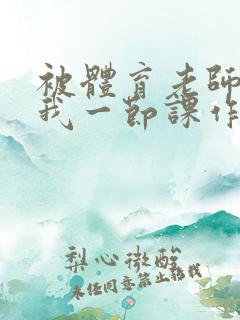 被體育老師
我一節課作
梨心微酸
未經同意禁止轉載